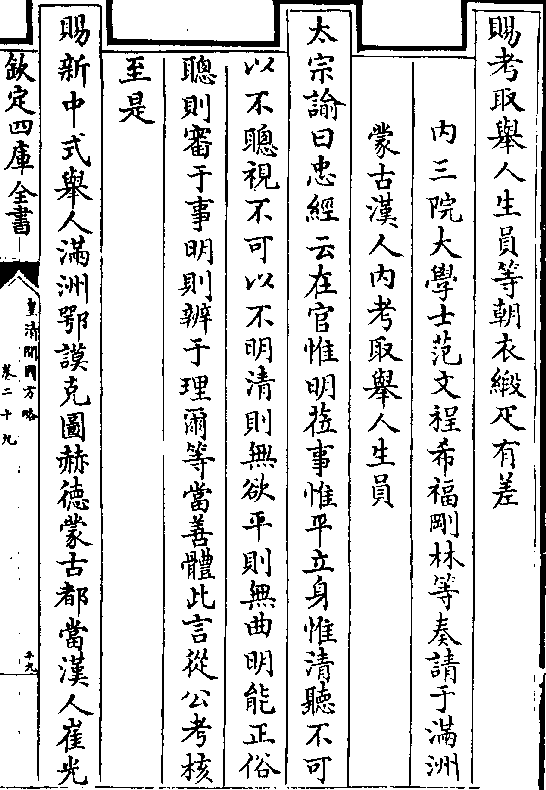 賜考取舉人生員等朝衣緞疋有差
内三院大學士范文程希福剛林等奏請于滿洲
蒙古漢人内考取舉人生員
太宗諭曰忠經云在官惟明莅事惟平立身惟清聽不可
以不聰視不可以不明清則無欲平則無曲明能正俗
聰則審于事明則辨于理爾等當善體此言從公考核
至是
賜新中式舉人滿洲鄂謨克圖赫德蒙古都當漢人崔光
欽定四庫全書
皇清開國方略
卷二十九